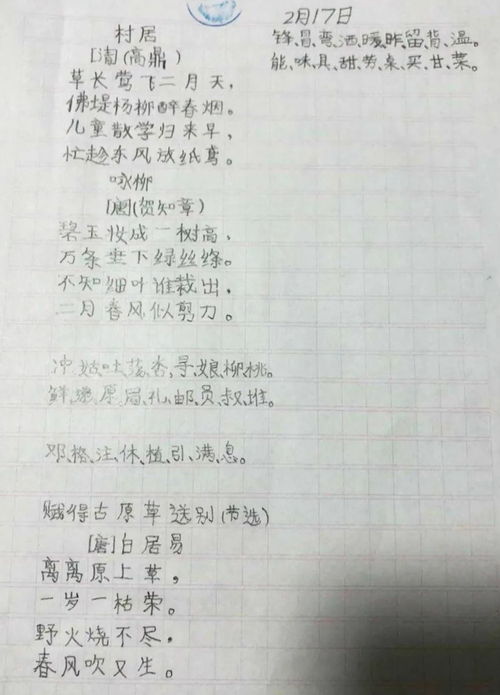 村居
[清](高鼎)
草长莺飞二月天，
佛堤杨柳醉春烟。
儿童散学归来早，
忙趁东风放纸鸢。
咏柳
[唐](贺知章)
碧玉妆成一树高，
万条垂下绿丝绦。
不知细叶谁裁出，
二月春风似剪刀。
冲、姑、吐、落、杏、寻、娘、柳、桃。
鲜、原、局、礼、邮、员、叔、堆。
邓、格、注、休、植、引、满、息。
赋得古原草送别(节选)
[唐]白居易
离离原上草，
一岁一枯荣。
野火烧不尽，
春风吹又生。
2月17日
锋、冒、弯、洒、暖、昨、留、背、温。
能、味、具、甜、劳、桌、买、甘、菜。